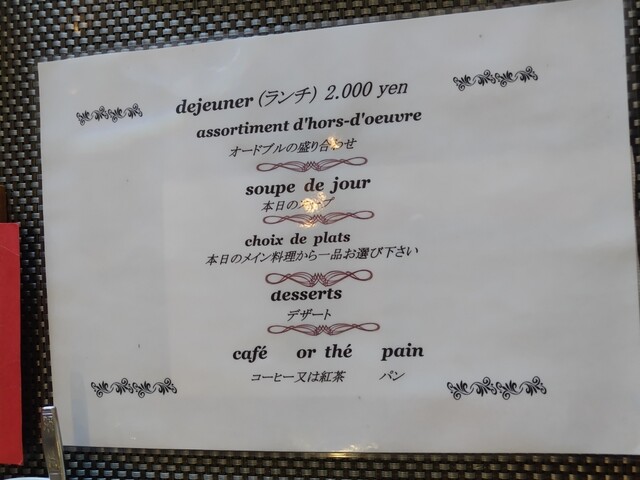 dejeuner (ランチ) 2.000 yen
assortiment d'hors-d'oeuvre
オードブルの盛り合わせ
soupe de jour
本日のスープ
choix de plats
本日のメイン料理から一品お選び下さい
desserts
デザート
café or thé pain
コーヒー又は紅茶 パン